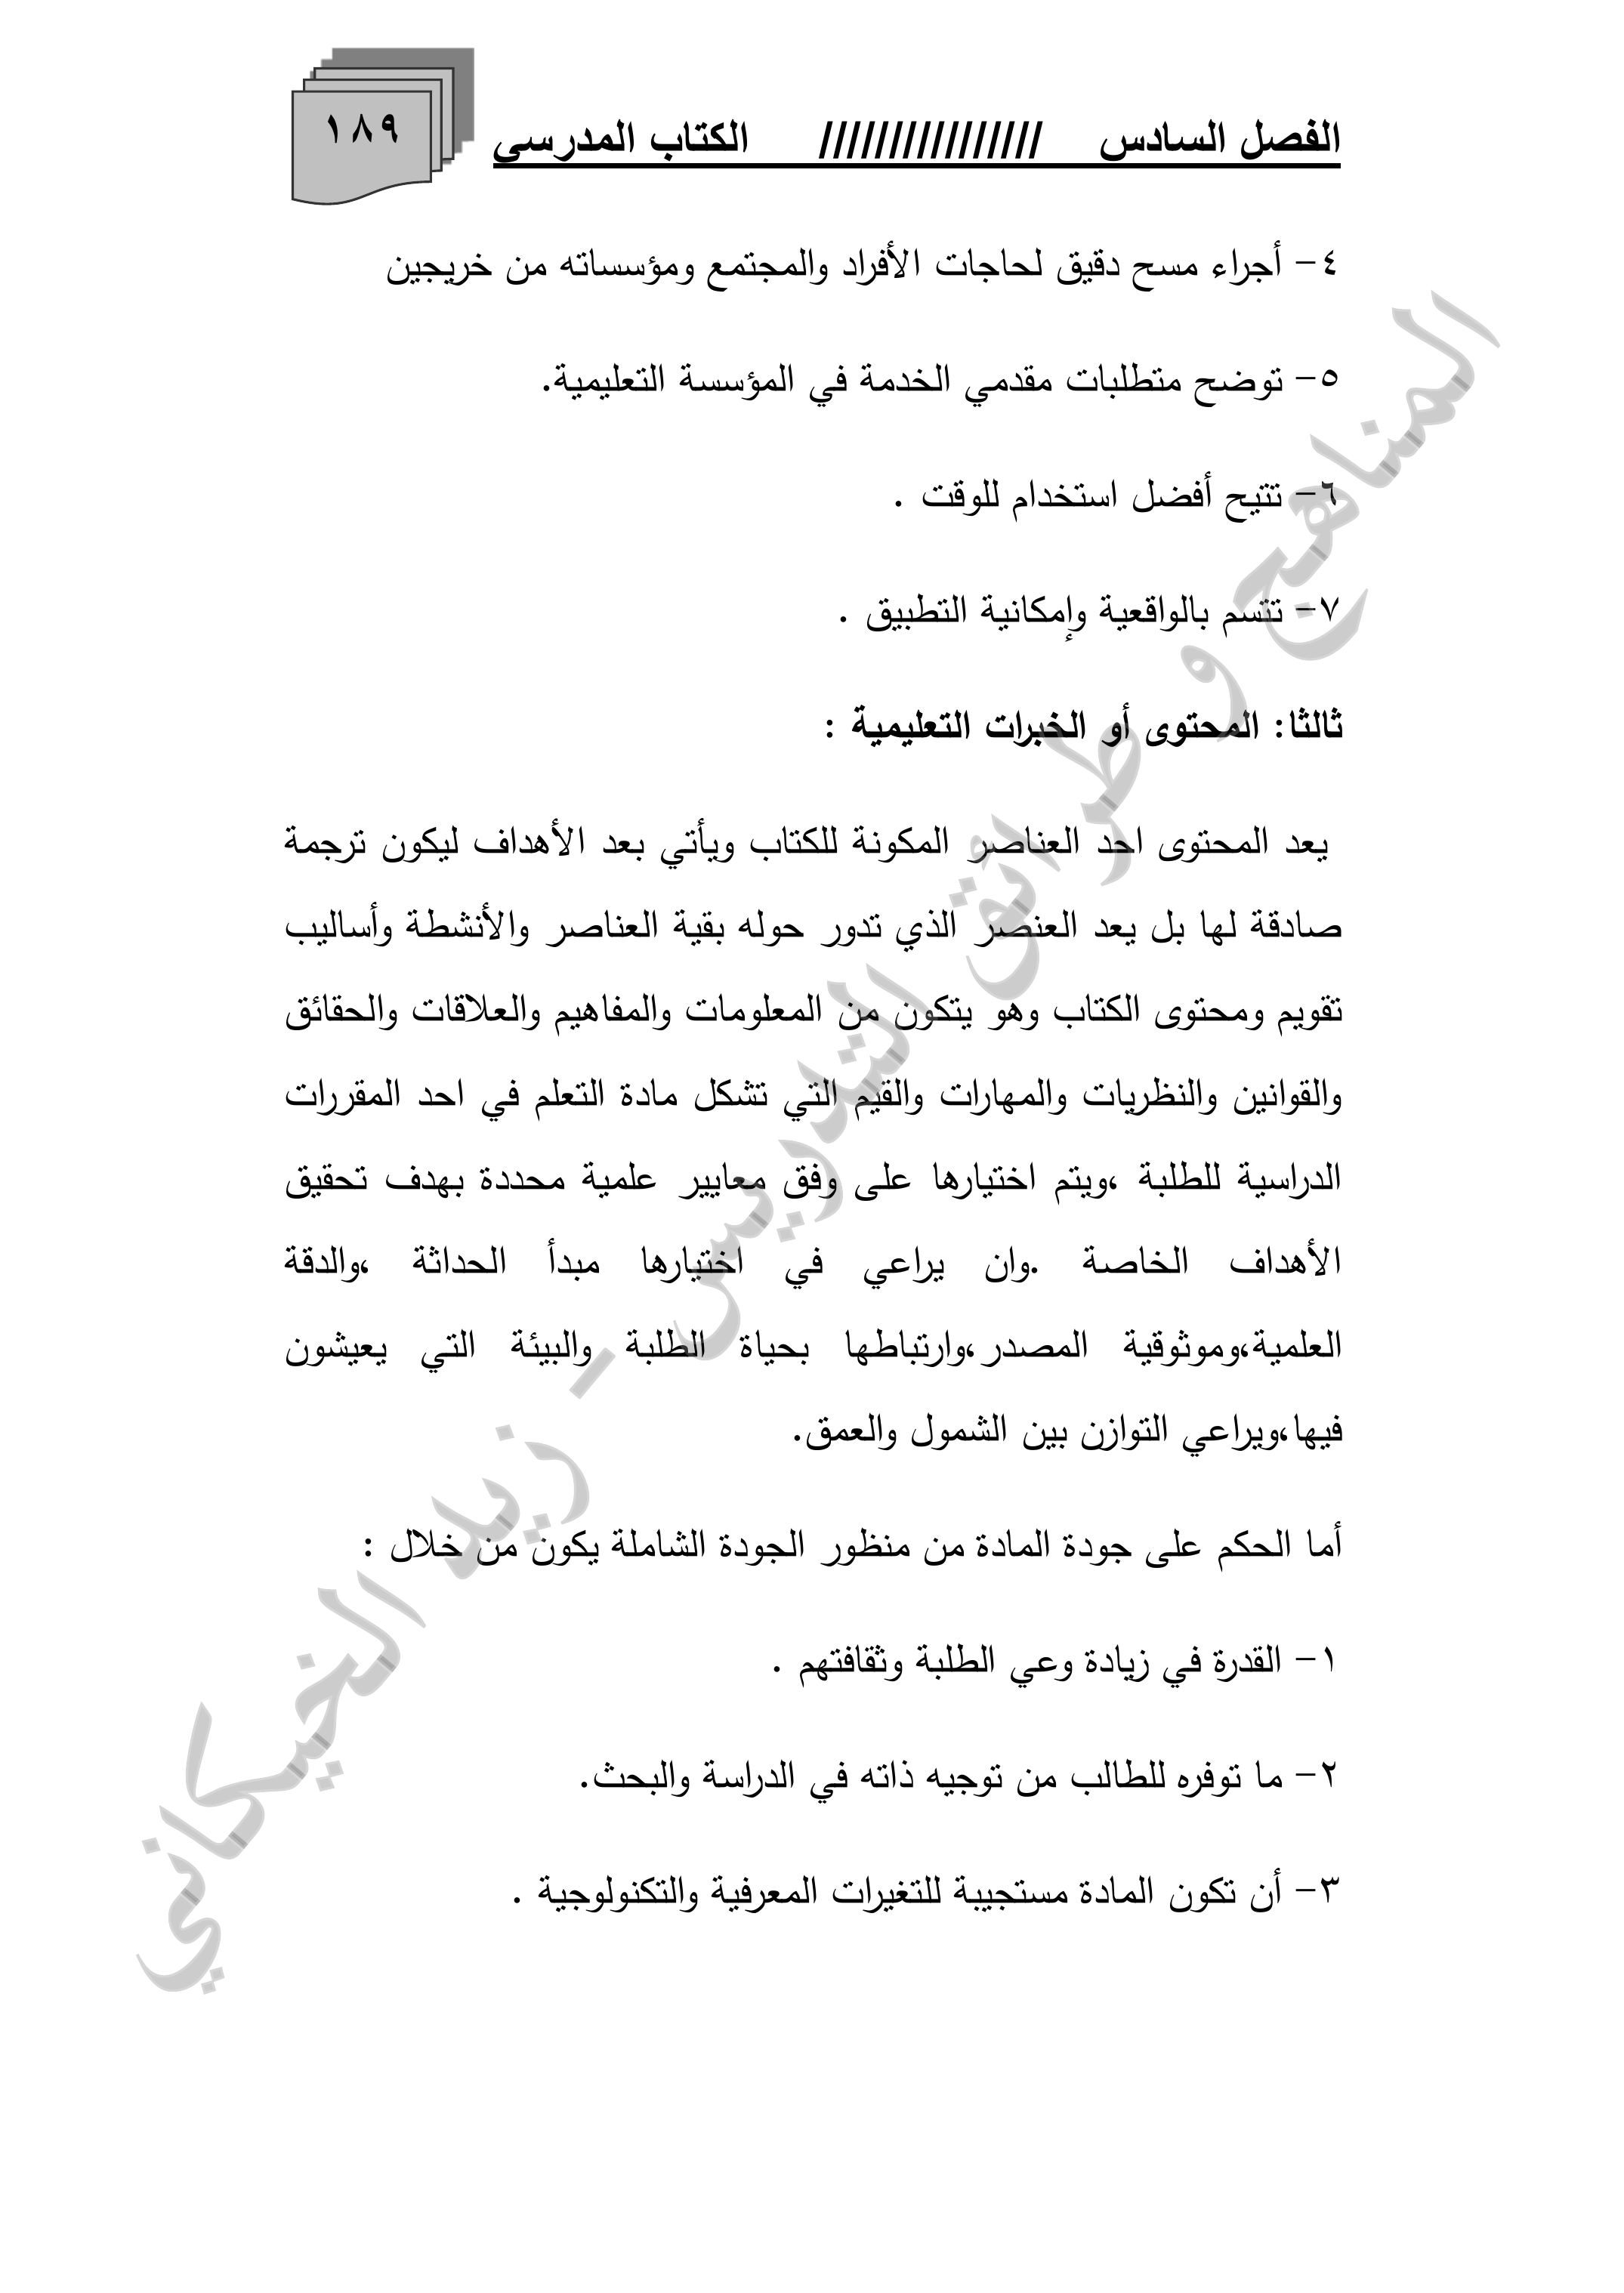 الفصل السادس //////////////// الكتاب المدرسي
١٨٩
٤- أجراء مسح دقيق لحاجات الأفراد والمجتمع ومؤسساته من خريجين
٥- توضح متطلبات مقدمي الخدمة في المؤسسة التعليمية.
٦- تتيح أفضل استخدام للوقت .
٧- تتسم بالواقعية وإمكانية التطبيق .
ثالثا: المحتوى أو الخبرات التعليمية :
يعد المحتوى احد العناصر المكونة للكتاب ويأتي بعد الأهداف ليكون ترجمة
صادقة لها بل يعد العنصر الذي تدور حوله بقية العناصر والأنشطة وأساليب
تقويم ومحتوى الكتاب وهو يتكون من المعلومات والمفاهيم والعلاقات والحقائق
والقوانين والنظريات والمهارات والقيم التي تشكل مادة التعلم في احد المقررات
الدراسية للطلبة ،ويتم اختيارها على وفق معايير علمية محددة بهدف تحقيق
الأهداف الخاصة .وان يراعي في اختيارها مبدأ الحداثة ،والدقة
العلمية،وموثوقية المصدر،وارتباطها بحياة الطلبة والبيئة التي يعيشون
فيها،ويراعي التوازن بين الشمول والعمق.
أما الحكم على جودة المادة من منظور الجودة الشاملة يكون من خلال :
١- القدرة في زيادة وعي الطلبة وثقافتهم .
٢- ما توفره للطالب من توجيه ذاته في الدراسة والبحث.
٣- أن تكون المادة مستجيبة للتغيرات المعرفية والتكنولوجية .
المناهج و طرائق التدريس - زيد الخيكاني